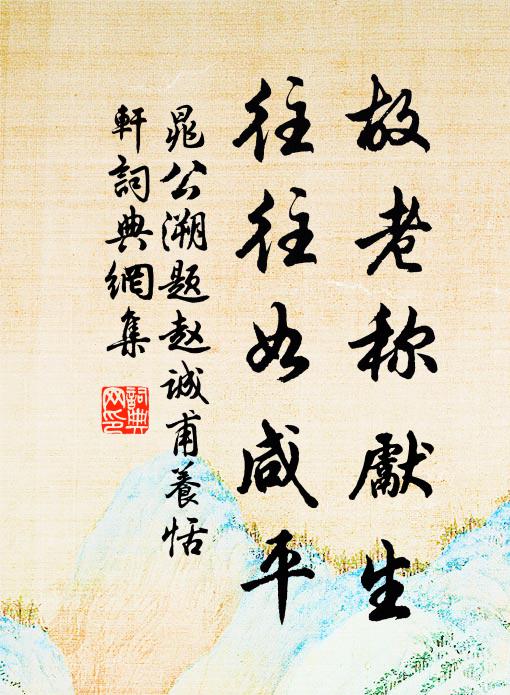 故老称獻生
往往如咸平
晁公溯题赵诚甫養恬
軒詞典網集
詞典
网印